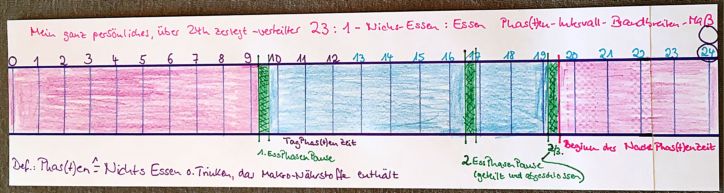 Mein ganz persönliches, über 24h zerlegt-verteilter 23:1-Nichts-Essen:Essen Phas(t)en-Intervall-Brandbreiten-Maß
0 1 2 3 4 5 6 7 8 9 10 11 12 13 14 15 16 17 18 19 20 21 22 23 24
TagPhas(t)enZeit
1. EssPhasenPause
2. EssPhasenPause
(geteilt und abgeschlossen)
2/2.
Beginn des NachtPhas(t)enZeit
Def.: Phas(t)en ≙ Nichts Essen o. Trinken, das Makro-Nährstoffe enthält